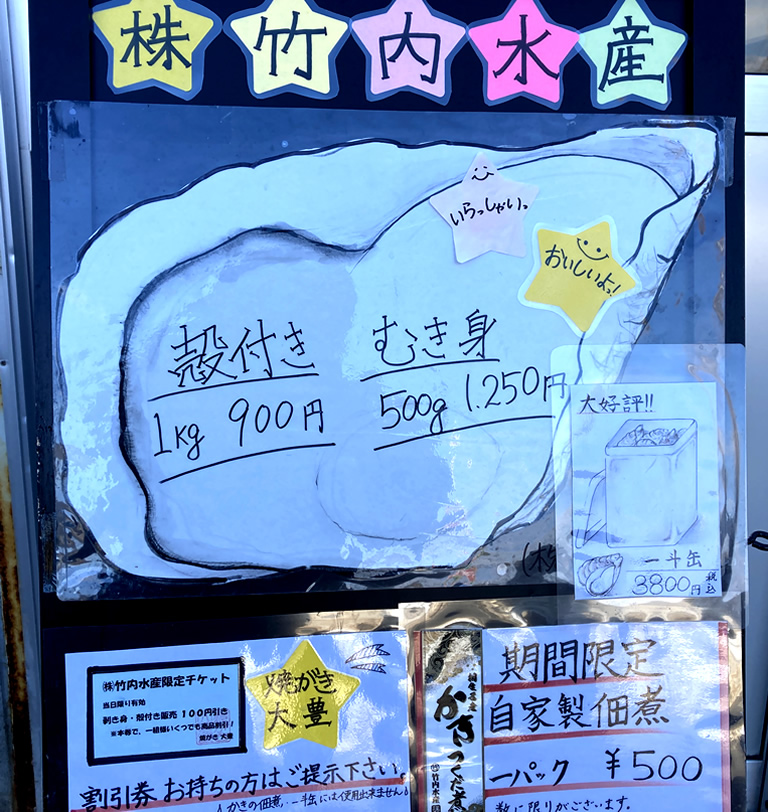 株竹内水産
いらっしゃいっ
おいしいよっ!
殻付き
1kg 900円
むき身
500g 1.250円
大好評!!
一斗缶
3800円 税込
(株
㈱竹内水産限定チケット
当日限り有効
剥き身・殻付き販売 100円引き
※本券で、一組様いくつでも商品割引!
焼がき 大豊
焼がき
大豊
割引券 お持ちの方はご提示下さい。
かきの佃煮・一斗缶には使用出来ません。
かきつくだ煮
期間限定
自家製佃煮
一パック ¥500
数に限りがございます。